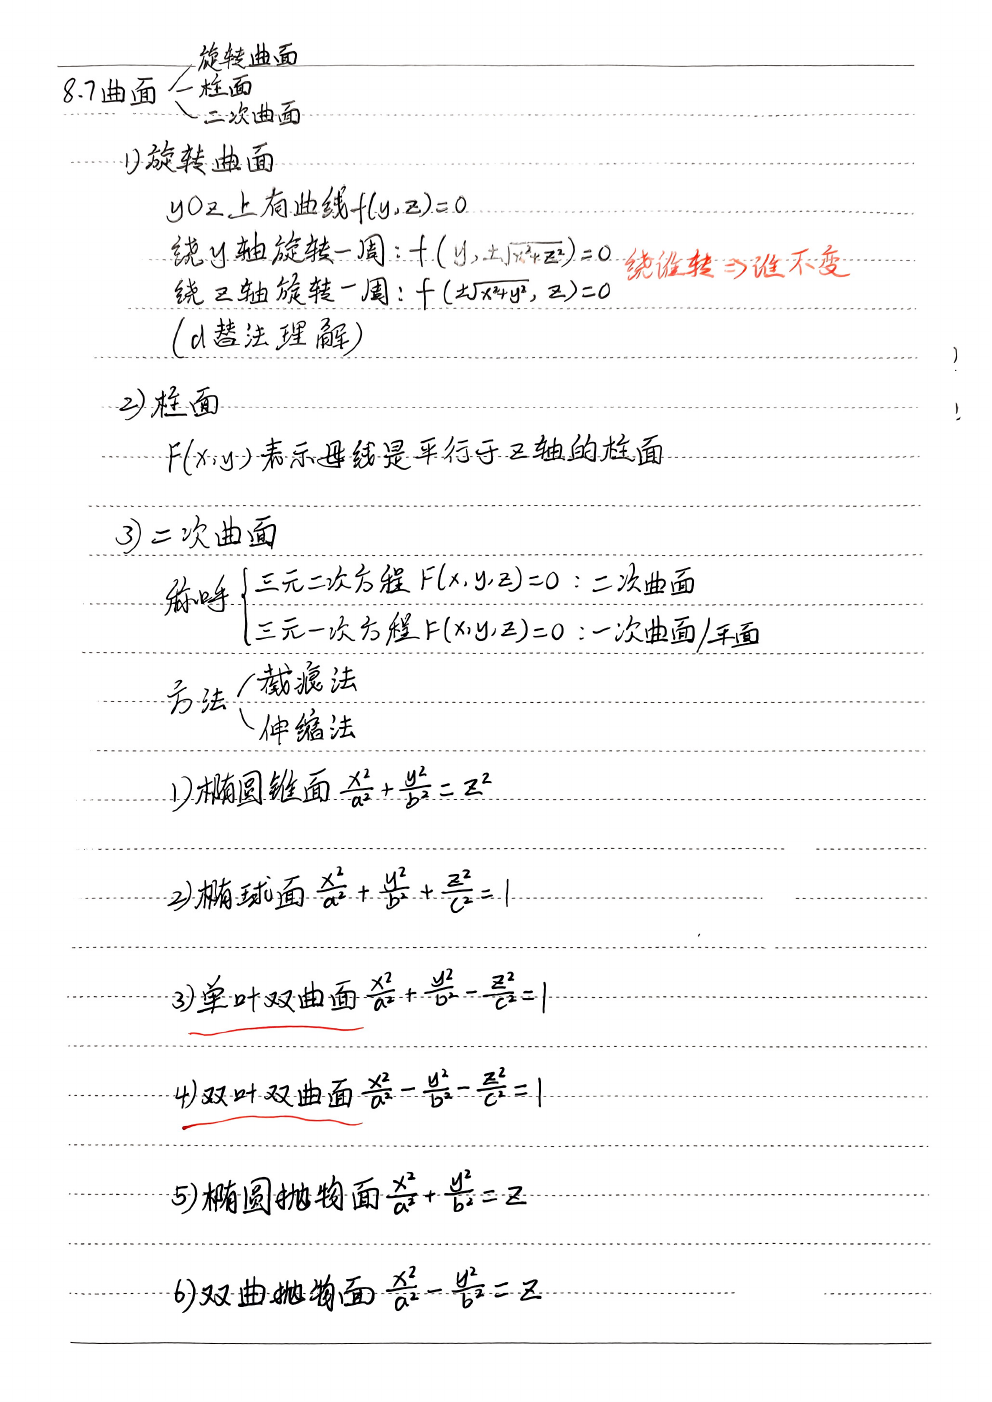 8.7曲面
旋转曲面
柱面
二次曲面
1)旋转曲面
yOz上有曲线f(y,z)=0
绕y轴旋转一周:f(y,±√x²+z²)=0
绕z轴旋转一周:f(±√x²+y²,z)=0
绕谁转⇒谁不变
(d替法理解)
2)柱面
F(x,y)表示母线是平行于z轴的柱面
3)二次曲面
称呼
三元二次方程F(x,y,z)=0:二次曲面
三元一次方程F(x,y,z)=0:一次曲面/平面
方法
截痕法
伸缩法
1)椭圆锥面 x²/a²+y²/b²=z²
2)椭球面 x²/a²+y²/b²+z²/c²=1
3)单叶双曲面 x²/a²+y²/b²-z²/c²=1
4)双叶双曲面 x²/a²-y²/b²-z²/c²=1
5)椭圆抛物面 x²/a²+y²/b²=z
6)双曲抛物面 x²/a²-y²/b²=z